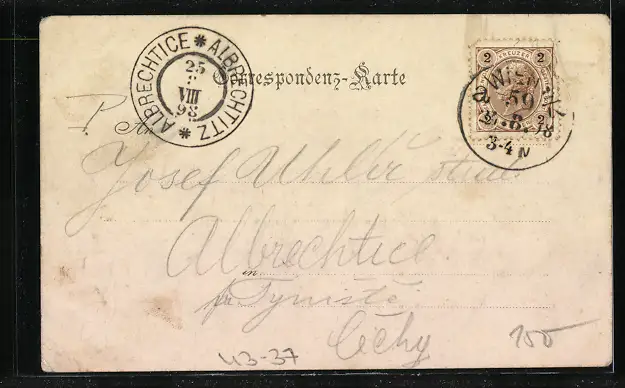 ALBRECHTICE * ALBRECHTITZ *
25
VIII
98
Correspondenz-Karte
2 KREUZER 2
2 2
WIEN
59
8.98
3-4 N
P. An
Josef Uhlíř stud.
Albrechtice
in
Týniště
Čechy
43-37
100